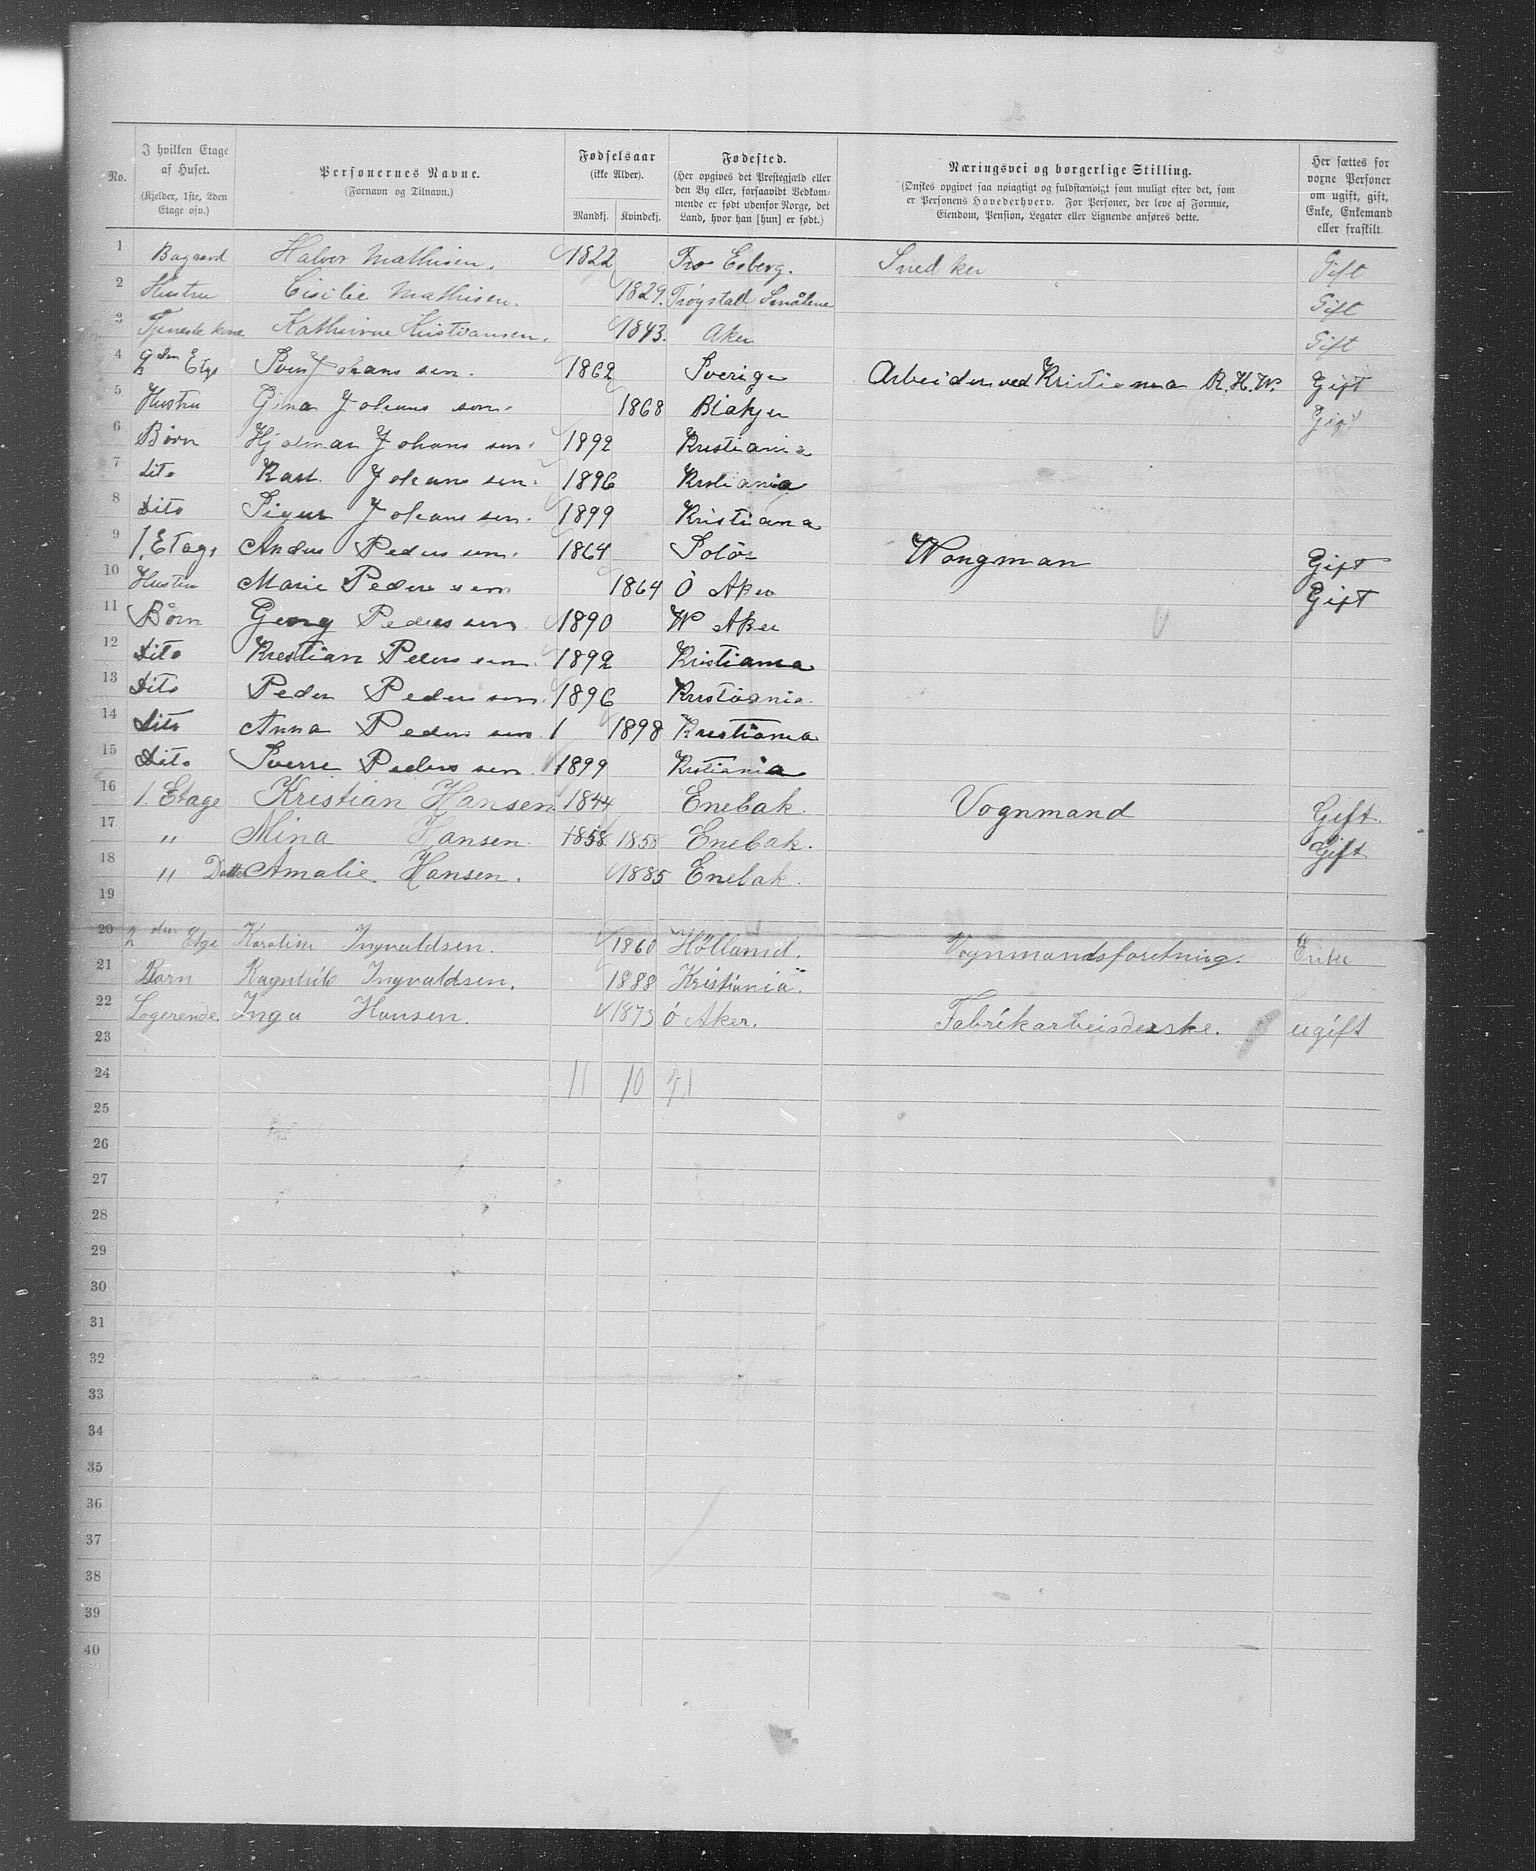 No.
I hvilken Etage af Huset. (Kjelder, 1ste, 2den Etage osv.)
Personernes Navne. (Fornavn og Tilnavn.)
Fødselsaar (ikke Alder). Mandkj. Kvindekj.
Fødested. (Her opgives det Prestegjæld eller den By eller, forsaavidt Vedkommende er født udenfor Norge, det Land, hvor han [hun] er født.)
Næringsvei og borgerlige Stilling. (Ønskes opgivet saa nøiagtigt og fuldstændigt som muligt efter det, som er Personens Hovederhverv. For Personer, der leve af Formue, Eiendom, Pension, Legater eller Lignende anføres dette.)
Her sættes for voxne Personer om ugift, gift, Enke, Enkemand eller fraskilt.
1 Bagaard Halvor Mathisen. 1822 Esberg. Snedker Gift
2 Hustru Cisilie Mathisen. 1829. Trøgstad Smålene Gift
3 Kathrinne Kristiansen. 1843. Aker Gift
4 2den Etge Sven Johanssen. 1862 Sverige Arbeider ved Kristiania R.H.W. Gift
5 Hustru Gina Johanssen. 1868 Blakjer Gift
6 Børn Hjalmar Johanssen. 1892 Kristiania
7 dito Karl Johanssen. 1896 Kristiania
8 dito Sigur Johanssen. 1899 Kristiana
9 1. Etage Anders Pederssen. 1864 Solør Wongman Gift
10 Hustru Marie Pederssen 1864 Ö Aker Gift
11 Børn Georg Pederssen 1890 W Aker
12 Dito Krestian Pederssen. 1892 Kristiania
13 Dito Peder Pederssen. 1896 Kristiania.
14 dito Anna Pederssen 1 1898 Kristiania
15 Dito Sverre Pederssen 1899 Kristiania
16 1. Etage Kristian Hansen 1844 Enebak. Vognmand Gift.
17 " Mina Hansen. 1858 1858 Enebak. Gift
18 " Datter Amalie Hansen. 1885 Enebak.
19
20 2den Etge Karoline Ingvaldsen. 1860 Hölland. Vognmandsforetning. Enke
21 Barn Ragnhild Ingvaldsen. 1888 Kristiania.
22 Logerende Inga Hansen. 1873 Ö Aker. Fabrikarbeisderske. ugift
23
24 11 10 21
25
26
27
28
29
30
31
32
33
34
35
36
37
38
39
40